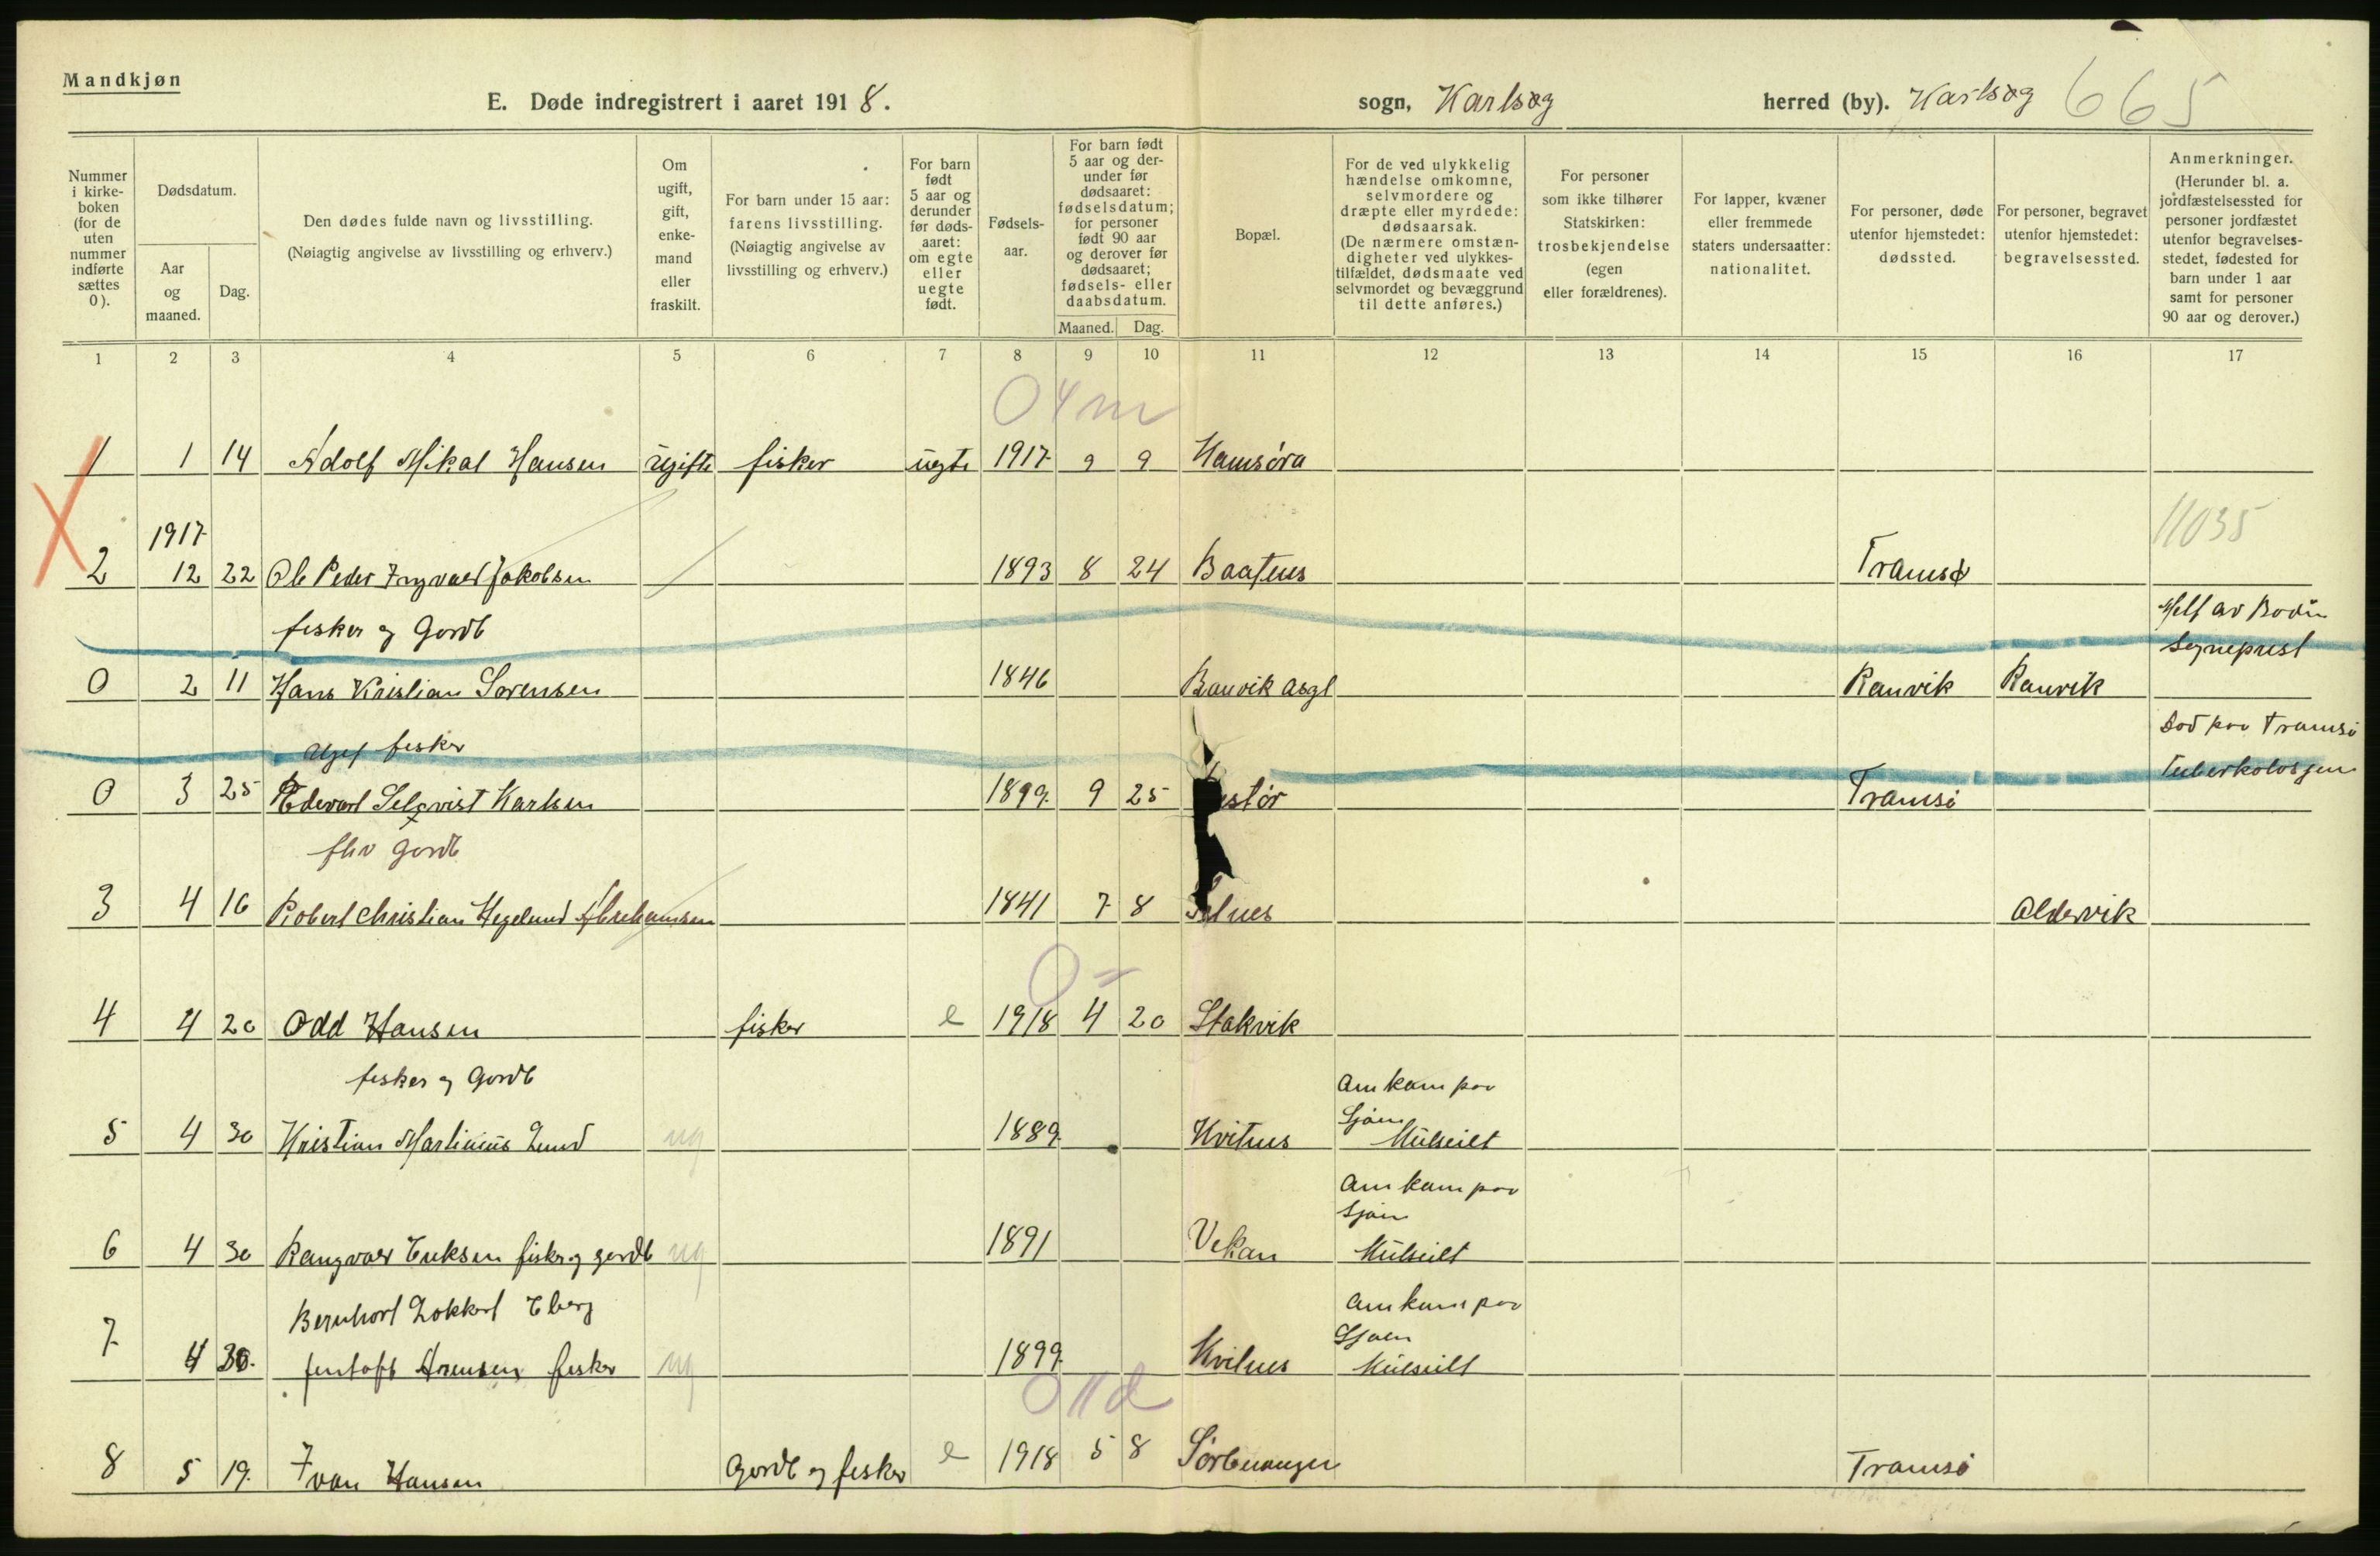 Mandkjøn
E. Døde indregistrert i aaret 1918. sogn, Karlsøg herred (by). Karlsøg 665
Nummer i kirkeboken (for de uten nummer indførte sættes 0).
Dødsdatum.
Aar og maaned.
Dag.
Den dødes fulde navn og livsstilling.
(Nøiagtig angivelse av livsstilling og erhverv.)
Om ugift, gift, enkemand eller fraskilt.
For barn under 15 aar: farens livsstilling.
(Nøiagtig angivelse av livsstilling og erhverv.)
For barn født 5 aar og derunder før dødsaaret: om egte eller uegte født.
Fødselsaar.
For barn født 5 aar og derunder før dødsaaret: fødselsdatum; for personer født 90 aar og derover før dødsaaret; fødsels- eller daabsdatum.
Maaned. Dag.
Bopæl.
For de ved ulykkelig hændelse omkomne, selvmordere og dræpte eller myrdede: dødsaarsak.
(De nærmere omstændigheter ved ulykkestilfældet, dødsmaate ved selvmordet og bevæggrund til dette anføres.)
For personer som ikke tilhører Statskirken: trosbekjendelse (egen eller forældrenes).
For lapper, kvæner eller fremmede staters undersaatter: nationalitet.
For personer, døde utenfor hjemstedet: dødssted.
For personer, begravet utenfor hjemstedet: begravelsessted.
Anmerkninger.
(Herunder bl. a. jordfæstelsessted for personer jordfæstet utenfor begravelsesstedet, fødested for barn under 1 aar samt for personer 90 aar og derover.)
1 2 3 4 5 6 7 8 9 10 11 12 13 14 15 16 17
0 4 m
1 1 14 Adolf Mikal Hansen ugifte fisker uegte 1917 9 9 Hamsöra
1917 11035
2 12 22 Ole Peder Ingvald Jakobsen 1893 8 24 Baatnes Tromsø
fisker og Gordb
Sogneprest
0 2 11 Hans Kristian Sørensen 1846 Ranvik Ranvik Ranvik
fisker
Död paa Tromsö
0 3 25 Edevart Selqvist Karlsen 1899 9 25 Tromsö Tuberkolosjen
Gordb
3 4 16 Robert Christian Hegelund Abrahamsen 1841 7 8 Oldervik
0
4 4 20 Odd Hansen fisker e 1918 4 20 Stakvik
fisker og Gordb
Om kom paa
5 4 30 Kristian Martinius Lund ug 1889 Kvitnes Sjöen
Om kom paa
Sjöen
6 4 30 Rangvald Eriksen fisker og gordb ug 1891
Bernhart Lokkert Eberg
Om kom paa
Sjøen
7 4 30. Jentoft fisker ug 1899 Kvitnes
0 11 d
8 5 19. Ivan Hansen Gordb og fisker e 1918 5 8 Sörlenangen Tromsö